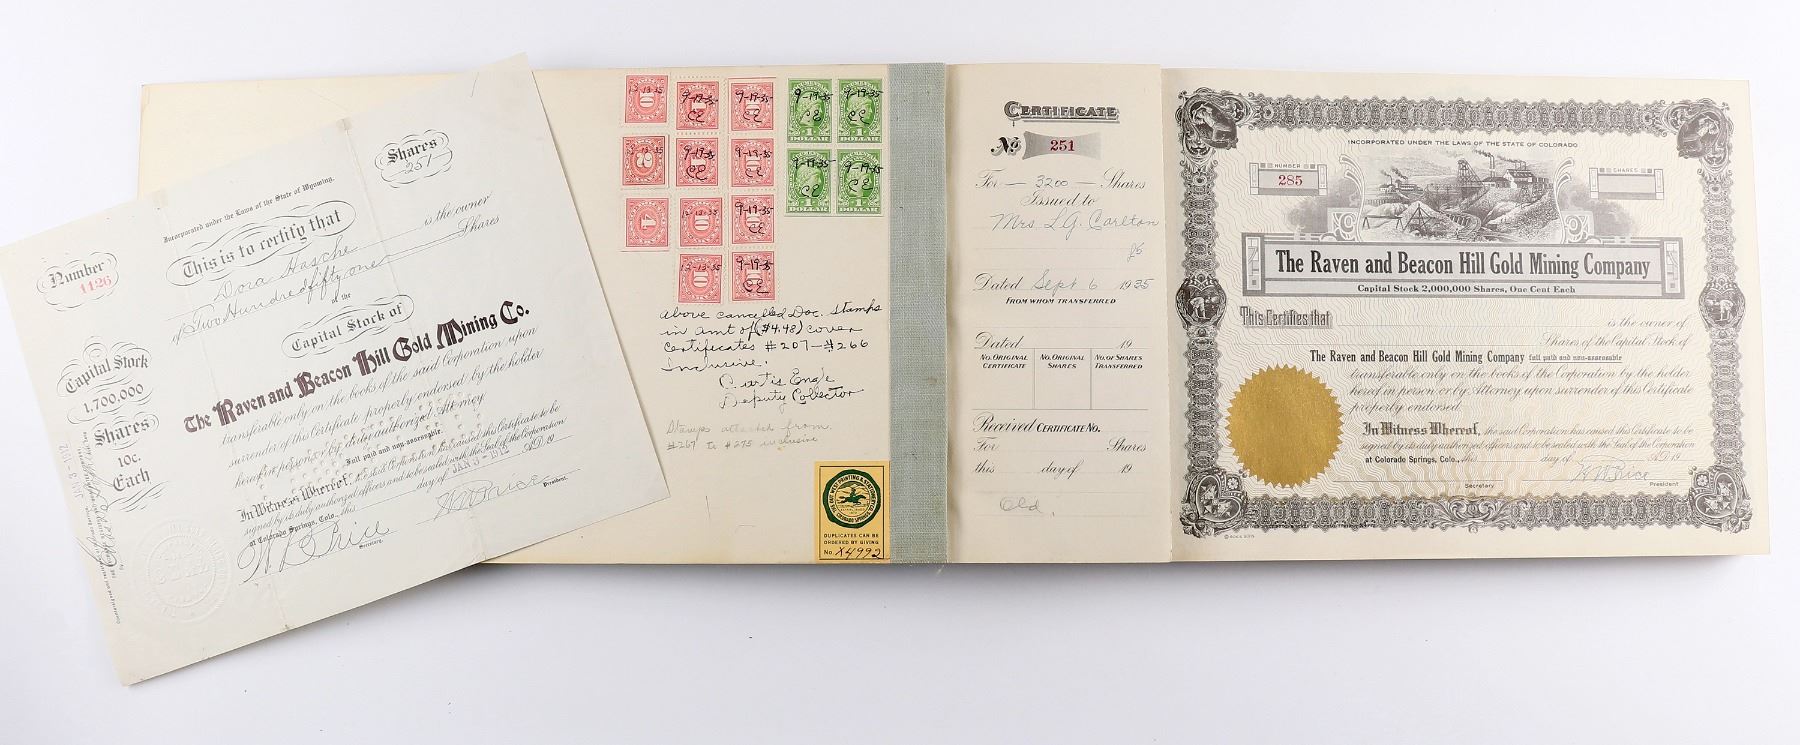 Incorporated under the Laws of the State of Wyoming.
Number
1126
Shares
251
This is to certify that
Dora Hasche is the owner
of Two Hundred fifty one Shares
of the
Capital Stock of
The Raven and Beacon Hill Gold Mining Co.
transferable only on the books of the said Corporation upon
surrender of this Certificate properly endorsed by the holder
hereof in person or by duly authorized Attorney
Full paid and non-assessable.
In Witness Whereof, the said Corporation has caused this Certificate to be
signed by its duly authorized officers and to be sealed with the Seal of the Corporation
at Colorado Springs, Colo., this day of JAN 3 - 1912 A.D. 19
President.
Secretary.
Capital Stock
1,700,000
Shares
10c.
Each
JAN 3 - 1912
12-13-35
9-19-35
CE
9-19-35
CE
9-19-35
CE
9-19-35
CE
1
DOLLAR
Above cancelled Doc. Stamps
in amt of ($4.48) cover
Certificates #207-#266
Inclusive.
Curtis Engle
Deputy Collector
Stamps attached from
#267 to #275 inclusive
DUPLICATES CAN BE
ORDERED BY GIVING
No. X4992
CERTIFICATE
No. 251
For — 3200 — Shares
Issued to
Mrs L.G. Carlton
Dated Sept 6 1935
FROM WHOM TRANSFERRED
Dated 19
NO. ORIGINAL CERTIFICATE NO. ORIGINAL SHARES NO. OF SHARES TRANSFERRED
Received CERTIFICATE NO.
For Shares
this day of 19
Old.
INCORPORATED UNDER THE LAWS OF THE STATE OF COLORADO
NUMBER
285
SHARES
The Raven and Beacon Hill Gold Mining Company
Capital Stock 2,000,000 Shares, One Cent Each
This Certifies that is the owner of
Shares of the Capital Stock of
The Raven and Beacon Hill Gold Mining Company full paid and non-assessable
transferable only on the books of the Corporation by the holder
hereof in person or by Attorney upon surrender of this Certificate
properly endorsed.
In Witness Whereof, the said Corporation has caused this Certificate to be
signed by its duly authorized officers and to be sealed with the Seal of the Corporation
at Colorado Springs, Colo., this day of A.D. 19
Secretary President